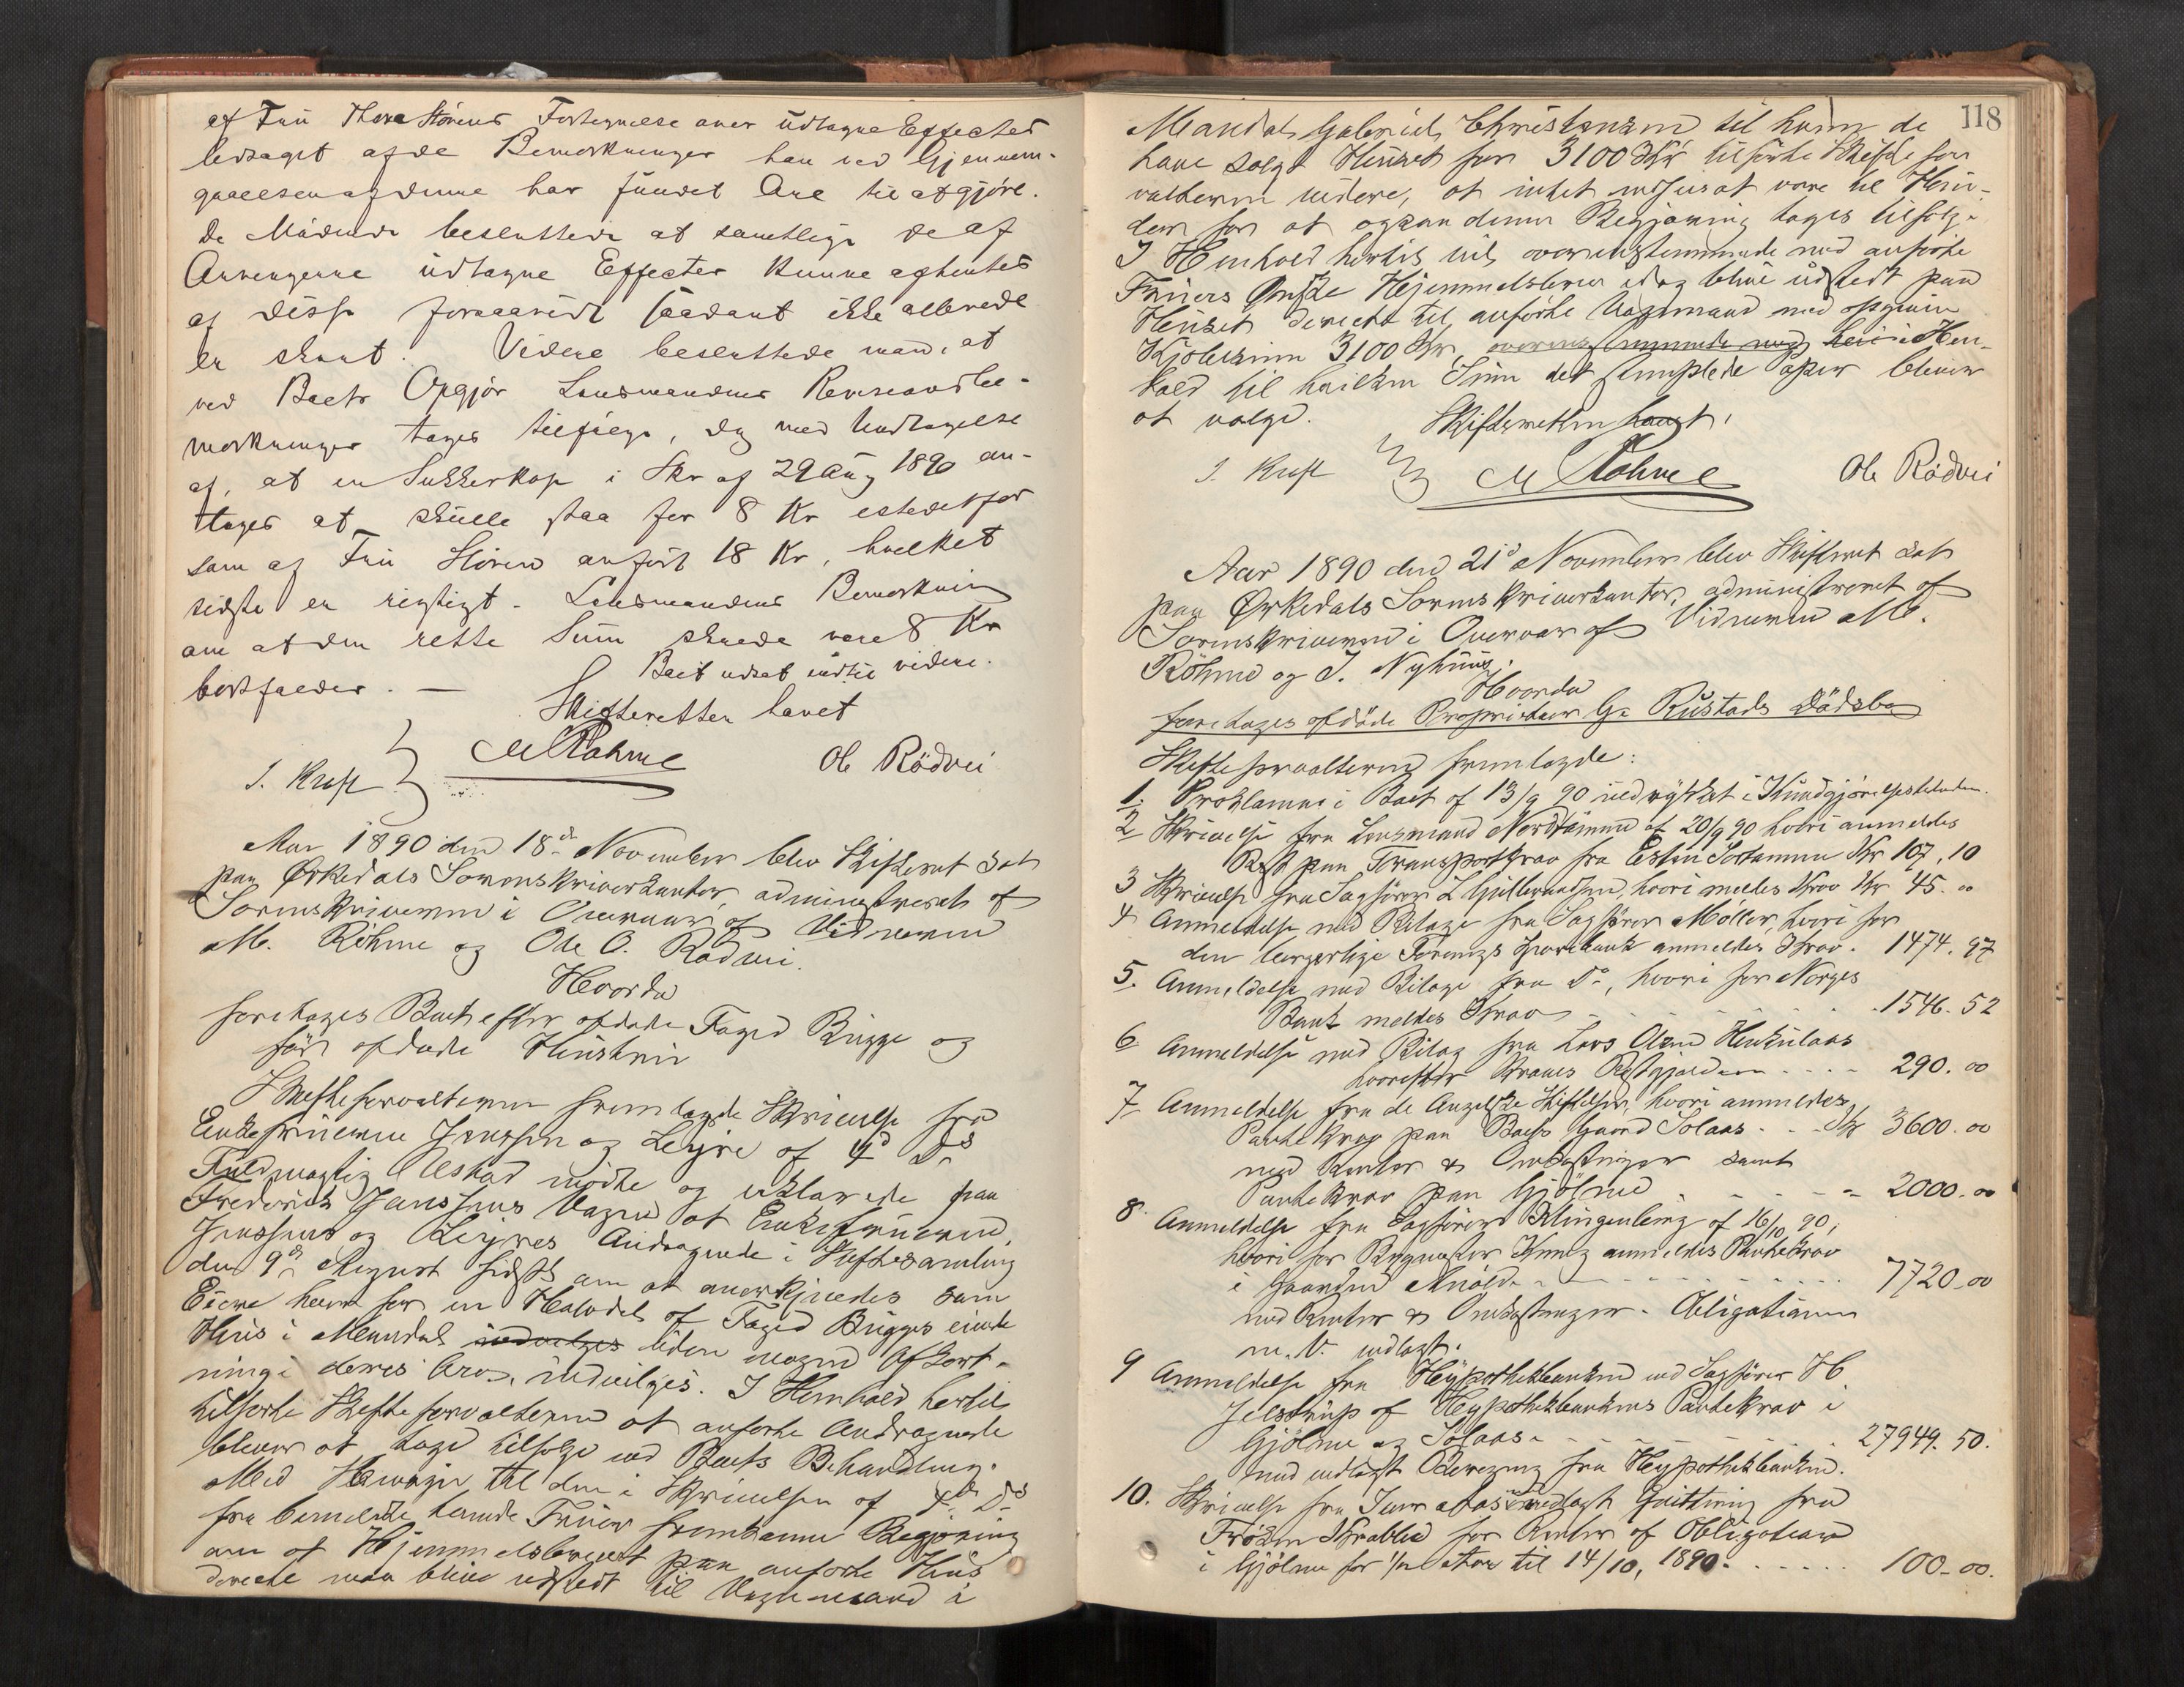 af Fru Thora Hörens Fortegnelse over udtagne Effecter
ledsaget af de Bemerkninger han ved Gjennem-
gaaelsen af denne har fundet Ane til at gjöre.
De Mödende besluttede at samtlige de af
Arvengerne udtagne Effecter kunne afhentes
af disse forsaavidt saadant ikke allerede
er skeet. Videre besluttede man, at
ved Boets Opgjör Lensmandens Revisionsbe-
merkninger tages tilfölge, dog med Undtagelse
af, at en Sukkerkop i Skr af 29 Aug 1890 an-
tages at skulle staa for 8 Kr istedetfor
som af Fru Hören anfört 18 Kr, hvilket
sidste er rigtigt. Lensmandens Bemerkning
om at den rette Sum skulde være 8 Kr
bortfalder. — Boet udsat indtil videre.
Skifteretten hævet
M Röhme Ole Rödvei
J. Kraft
Aar 1890 den 18de November blev Skifteret sat
paa Ørkedals Sorenskriverkontor, administreret af
Sorenskriveren i Overvær af Vidnerne
M. Röhme og Ole O. Rödvei.
Hvorda
foretages Boet efter afdøde Faged Brigge og
før afdøde Hustru
Skifteforvalteren fremlagde Skrivelse fra
Enkefruerne Jenssen og Lysre af 4d Ds
Fuldmægtig Alstad mödte og erklærede paa
Frederik Janssens Vegne at Enkefruerne
Jenssens og Leyres Andragende i Skiftesamling
den 9de August sidstl. om at anerkjendes som
Eiere hver for en Halvdel af Faged Brigges eiende
Hus i Meundal indvelges uden nogen Afkort-
ning i deres Arv, indvilges. I Henhold hertil
tilførte Skifteforvalteren at anførte Andragende
bliver at tage tilfølge ved Boets Behandling.
Med Hensyn til den i Skrivelsen af 4de Ds
fra bemeldte tvende Fruer fremkomne Begjæring
om at Hjemmelsbrevet paa anførte Hus
directe maa blive udstedt til Vognmand i
118
Mandal Gabriel Christensen til hvem de
have solgt Huset for 3100 Kr tilførte Skiftefor
valteren videre, at intet vides at være til Hin-
der for at ogsaa denne Begjæring tages tilfølge
I Henhold hertil vil overensstemmende med anførte
Fruers Ønske Hjemmelsbrev idag blive udstedt paa
Huset directe til anførte Vognmand med opgiven
Kjøbesum 3100 Kr, overensstemmende med hvi i Hen-
hold til hvilken Sum det stemplede Papir bliver
at vælge. Skifteretten hævet.
J. Kraft M Röhme Ole Rödvei
Aar 1890 den 21de November blev Skifteret sat
paa Ørkedals Sorenskriverkontor, administreret af
Sorenskriveren i Overvær af Vidnerne M.
Röhme og J. Nyhuus.
Hvorda
foretages afdøde Proprietær G. Rustads Dødsbo
Skifteforvalteren fremlagde:
1. Proklama i Boet af 13/9 90 indrykket i Kundgjørelsestidende.
2 Skrivelse fra Lensmand Nordtömme af 20/9 90 hvori anmeldes
Rest paa Transportkrav fra Estin Sortamnen Kr 107,10
3 Skrivelse fra Sagfører L Gulbrandsen, hvori meldes Krav Kr 45.00
4 Anmeldelse med Bilage fra Sagfører Möller, hvori for
den borgerlige Forenings Sparebank anmeldes Krav. 1474. 97
5. Anmeldelse med Bilage fra Do, hvori for Norges
Bank meldes Krav . . . . 1546. 52
6 Anmeldelse med Bilag fra Lars Olsen Henkulaas
hvorefter kraves Restgjælden . . . . 290. 00
7 Anmeldelse fra de Angelske Stiftelser, hvori anmeldes
Pantekrav paa Boets Gaard Solaas . . . Kr 3600.00
med Renter & Omkostninger samt
Pantekrav paa Gjölme . . . . 2000.00
8 Anmeldelse fra Sagfører Klingenberg af 16/10 90,
hvori for Bygmester Kunig anmeldes Pantekrav
i Gaarden Auölde . . . . 7720-00
med Renter & Omkostninger. Obligationen
m. V. vedlagt.
9 Anmeldelse fra Hypothekbanken ved Sagfører H
Jelstrup af Hypothekbankens Pantekrav i
Gjölme og Solaas . . . . 27949. 50.
med vedlagt Beregning fra Hypothekbanken.
10. Skrivelse fra Iver Aas vedlagt Qvittering fra
Frøken Krabbe for Renter af Obligation
i Gjölme for 1/2 Aar til 14/10, 1890. . . . . 100-00.